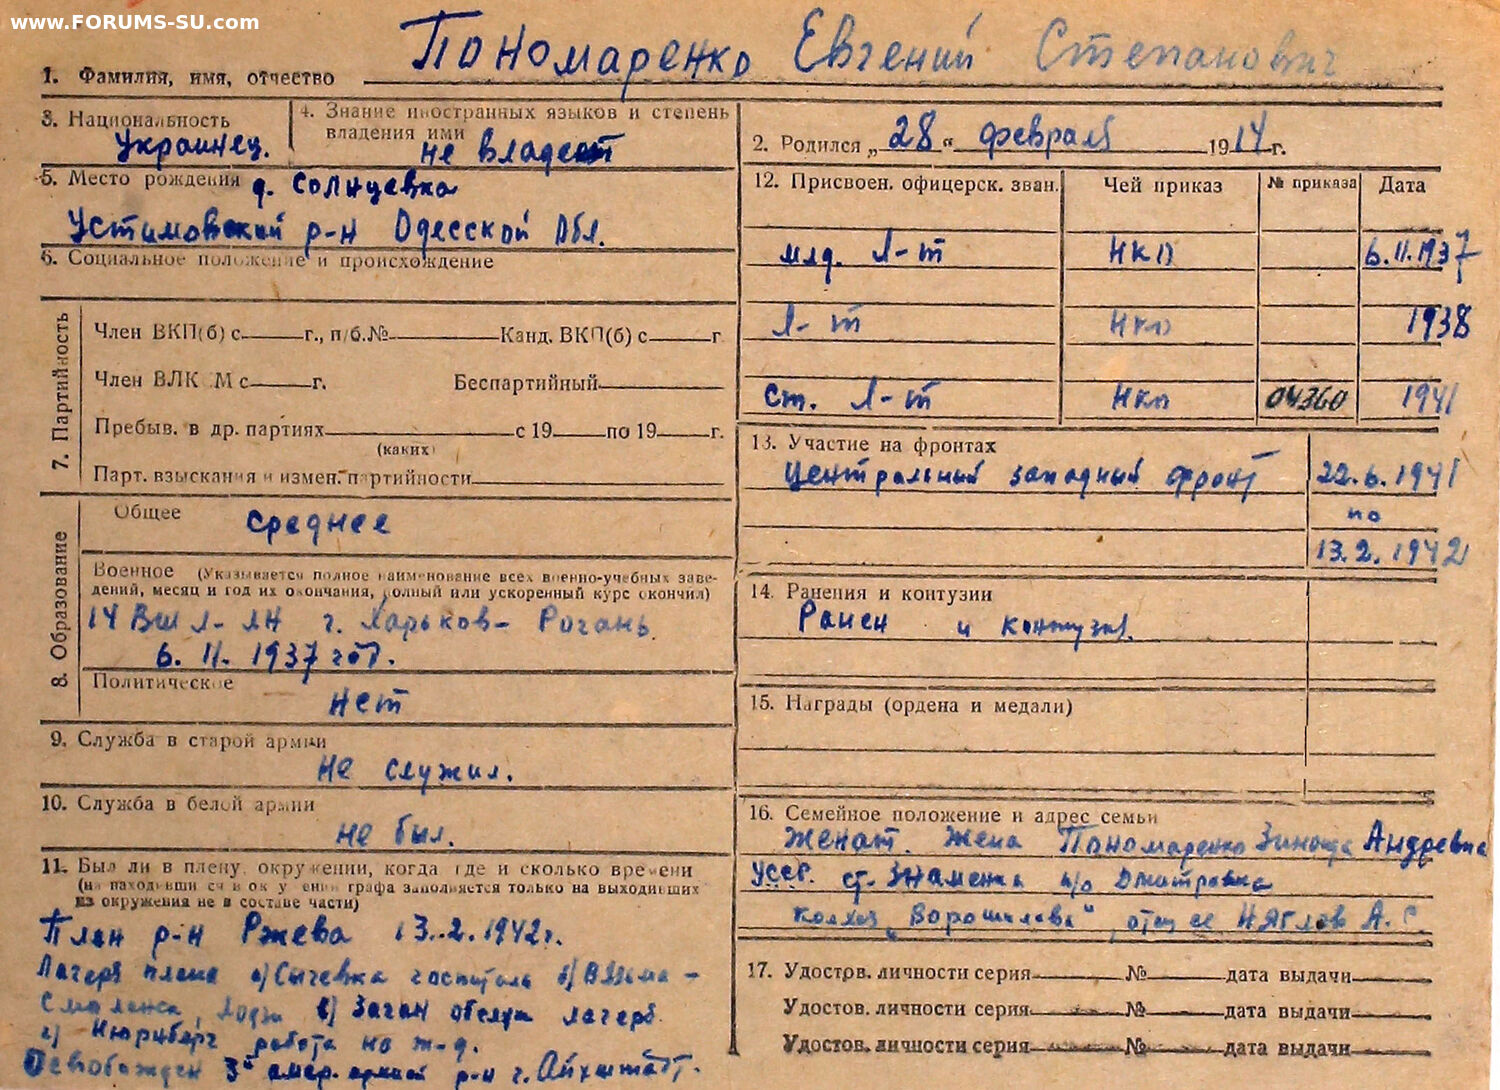 www.FORUMS-SU.com
1. Фамилия, имя, отчество Пономаренко Евгений Степанович
3. Национальность
Украинец.
4. Знание иностранных языков и степень
владения ими
не владеет
5. Место рождения д. Солнцевка
Устимовский р-н Одесской Обл.
6. Социальное положение и происхождение
7. Партийность
Член ВКП(б) с г., п/б.№ Канд. ВКП(б) с г
Член ВЛК М с г. Беспартийный
Пребыв. в др. партиях с 19 по 19 г.
(каких)
Парт. взыскания и измен. партийности
8. Образование
Общее среднее
Военное (Указывается полное наименование всех военно-учебных заве-
дений, месяц и год их окончания, полный или ускоренный курс окончил)
14 ВШЛ-ЛН г. Харьков- Рогань
6. 11. 1937 год.
Политическое
нет
9. Служба в старой армии
не служил.
10. Служба в белой армии
не был.
11. Был ли в плену, окружении, когда где и сколько времени
(на находивши ся в ок у ении графа заполняется только на выходивших
из окружения не в составе части)
Плен р-н Ржева 13.2.1942г.
Лагеря плена а) Сычевка госпиталь б) Вязьма -
Смоленск, Лодзь в) Заган обслуж лагеря.
г) Нюрнберг работа на ж-д.
Освобожден 3й амер. армией р-н г. Айхштадт.
2. Родился „28“ февраля 1914 г.
12. Присвоен. офицерск. зван. Чей приказ № приказа Дата
млд. Л-т НКО 6.11.1937
Л-т НКО 1938
Ст. Л-т НКО 04360 1941
13. Участие на фронтах
Центральный западный фронт 22.6.1941
по
13.2.1942
14. Ранения и контузии
Ранен и контузия.
15. Награды (ордена и медали)
16. Семейное положение и адрес семьи
Женат. Жена Пономаренко Зинаида Андревна
УССР. ст. Знаменка п/о Дмитровка
колхоз „Ворошилова“, отец ее Няглов А. С.
17. Удостов. личности серия № дата выдачи
Удостов. личности серия № дата выдачи
Удостов. личности серия № дата выдачи